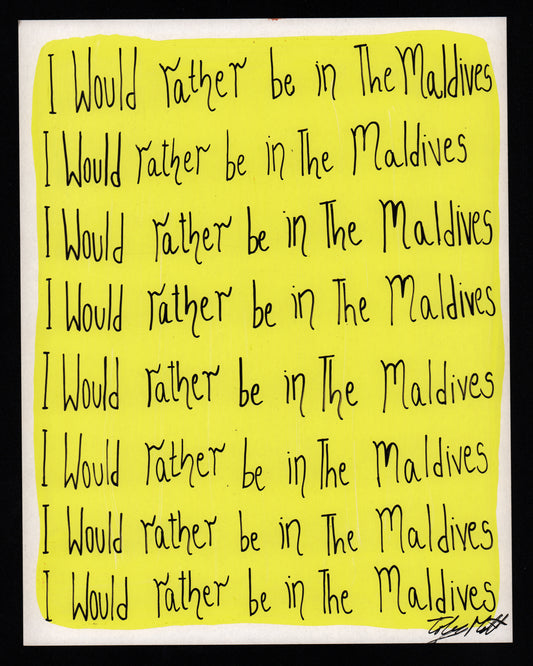 I Would rather be in The Maldives
I Would rather be in The Maldives
I Would rather be in The Maldives
I Would rather be in The Maldives
I Would rather be in The Maldives
I Would rather be in The Maldives
I Would rather be in The Maldives
I Would rather be in The Maldives